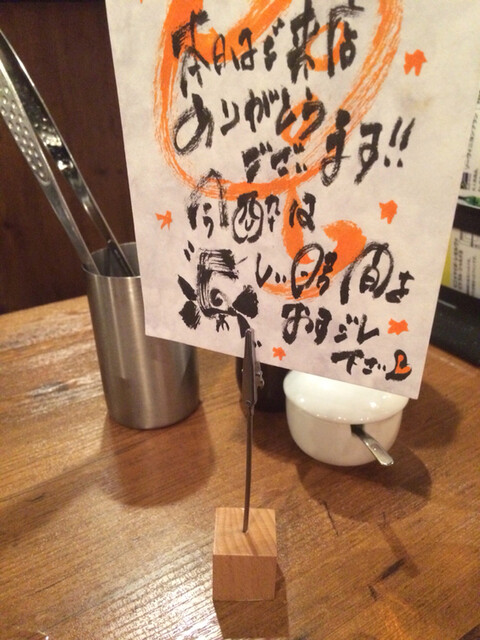 本日はご来店
ありがとう
ございます!!
今酔は
楽しい時間を
おすごし
下さい